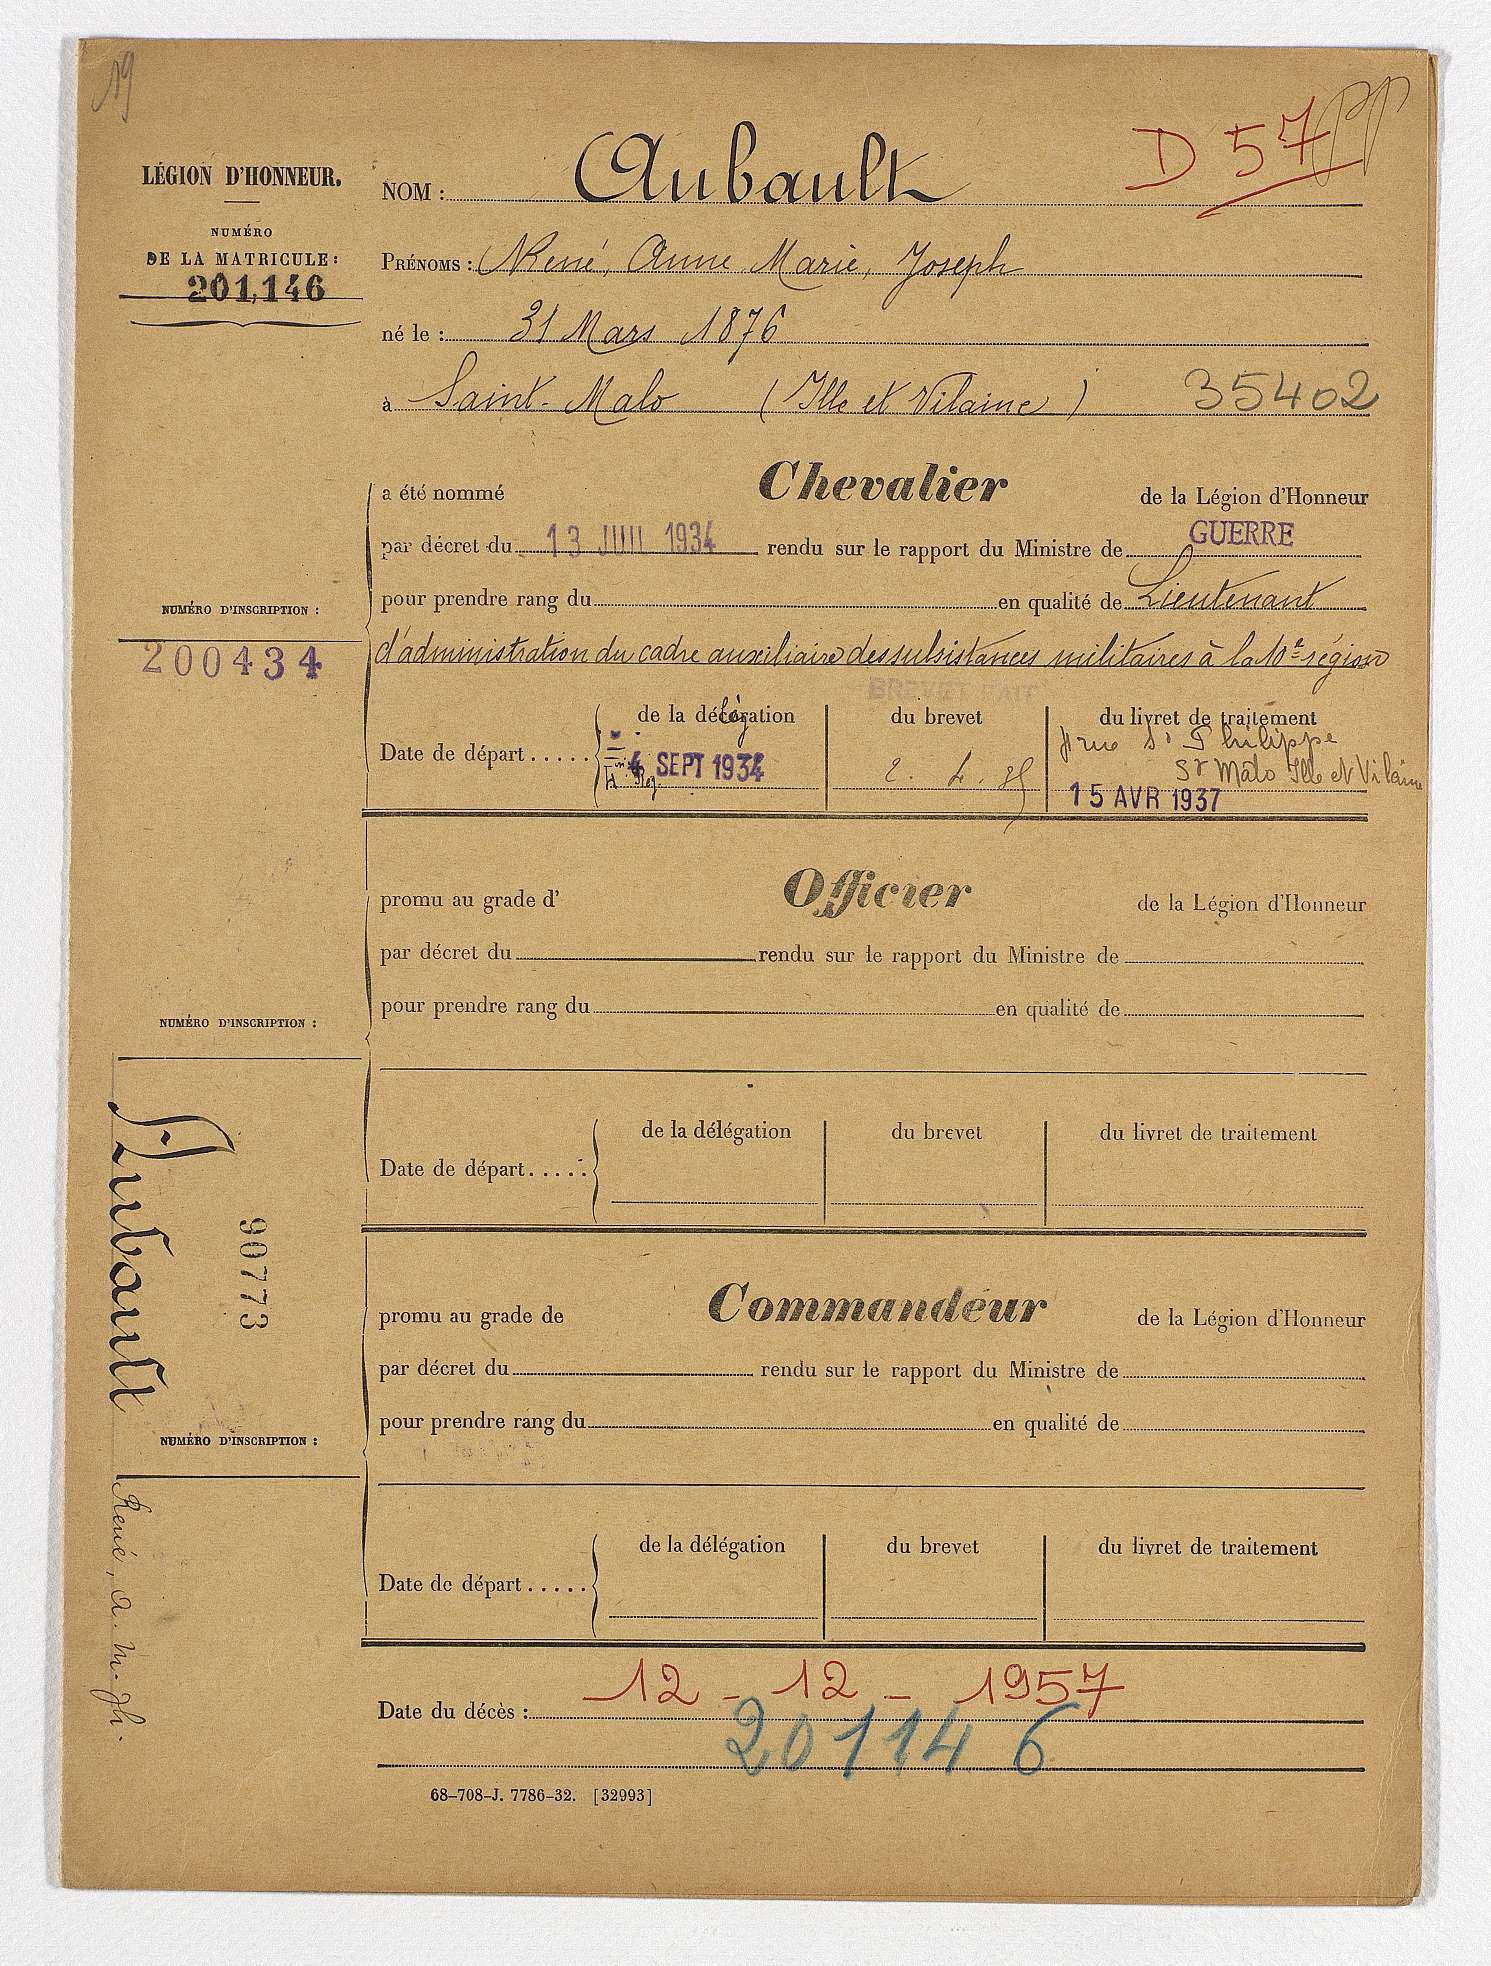 19
D 57
LÉGION D'HONNEUR.
NUMÉRO
DE LA MATRICULE :
201,146
NOM : Aubault
PRÉNOMS : René, Anne Marie, Joseph
né le : 31 Mars 1876
à Saint-Malo (Ille et Vilaine) 35402
a été nommé Chevalier de la Légion d'Honneur
par décret du 13 JUIL 1934 rendu sur le rapport du Ministre de GUERRE
pour prendre rang du en qualité de Lieutenant
NUMÉRO D'INSCRIPTION :
200434
d'administration du cadre auxiliaire des subsistances militaires à la 10e région
BREVET FAIT
Date de départ.....
de la décoration
lég
4 SEPT 1934
du brevet
2. 4. 35
du livret de traitement
rue St Philippe
St Malo Ille et Vilaine
15 AVR 1937
promu au grade d' Officier de la Légion d'Honneur
par décret du rendu sur le rapport du Ministre de
pour prendre rang du en qualité de
NUMÉRO D'INSCRIPTION :
Date de départ.....
de la délégation
du brevet
du livret de traitement
promu au grade de Commandeur de la Légion d'Honneur
par décret du rendu sur le rapport du Ministre de
pour prendre rang du en qualité de
NUMÉRO D'INSCRIPTION :
Date de départ.....
de la délégation
du brevet
du livret de traitement
Date du décès : 12 - 12 - 1957
201146
68-708-J. 7786-32. [32993]
Aubault René, A. M. Jh.
90773